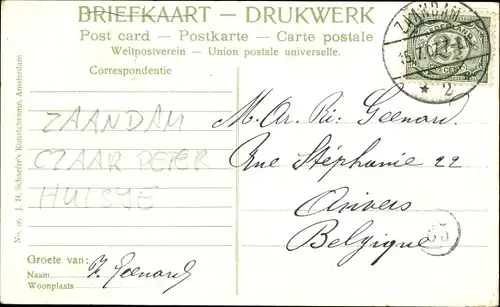 BRIEFKAART — DRUKWERK
Post card — Postkarte — Carte postale
Weltpostverein — Union postale universelle.
Correspondentie
ZAANDAM
2
NEDERLAND
ZAANDAM
CZAAR PETER
HUISJE
M. Ar. Ri: Geenard
Rue Stéphanie 22
Anvers
Belgique
Groete van: F. Geenard
Naam
Woonplaats
J. H. Schaefer's Kunstchromo, Amsterdam.